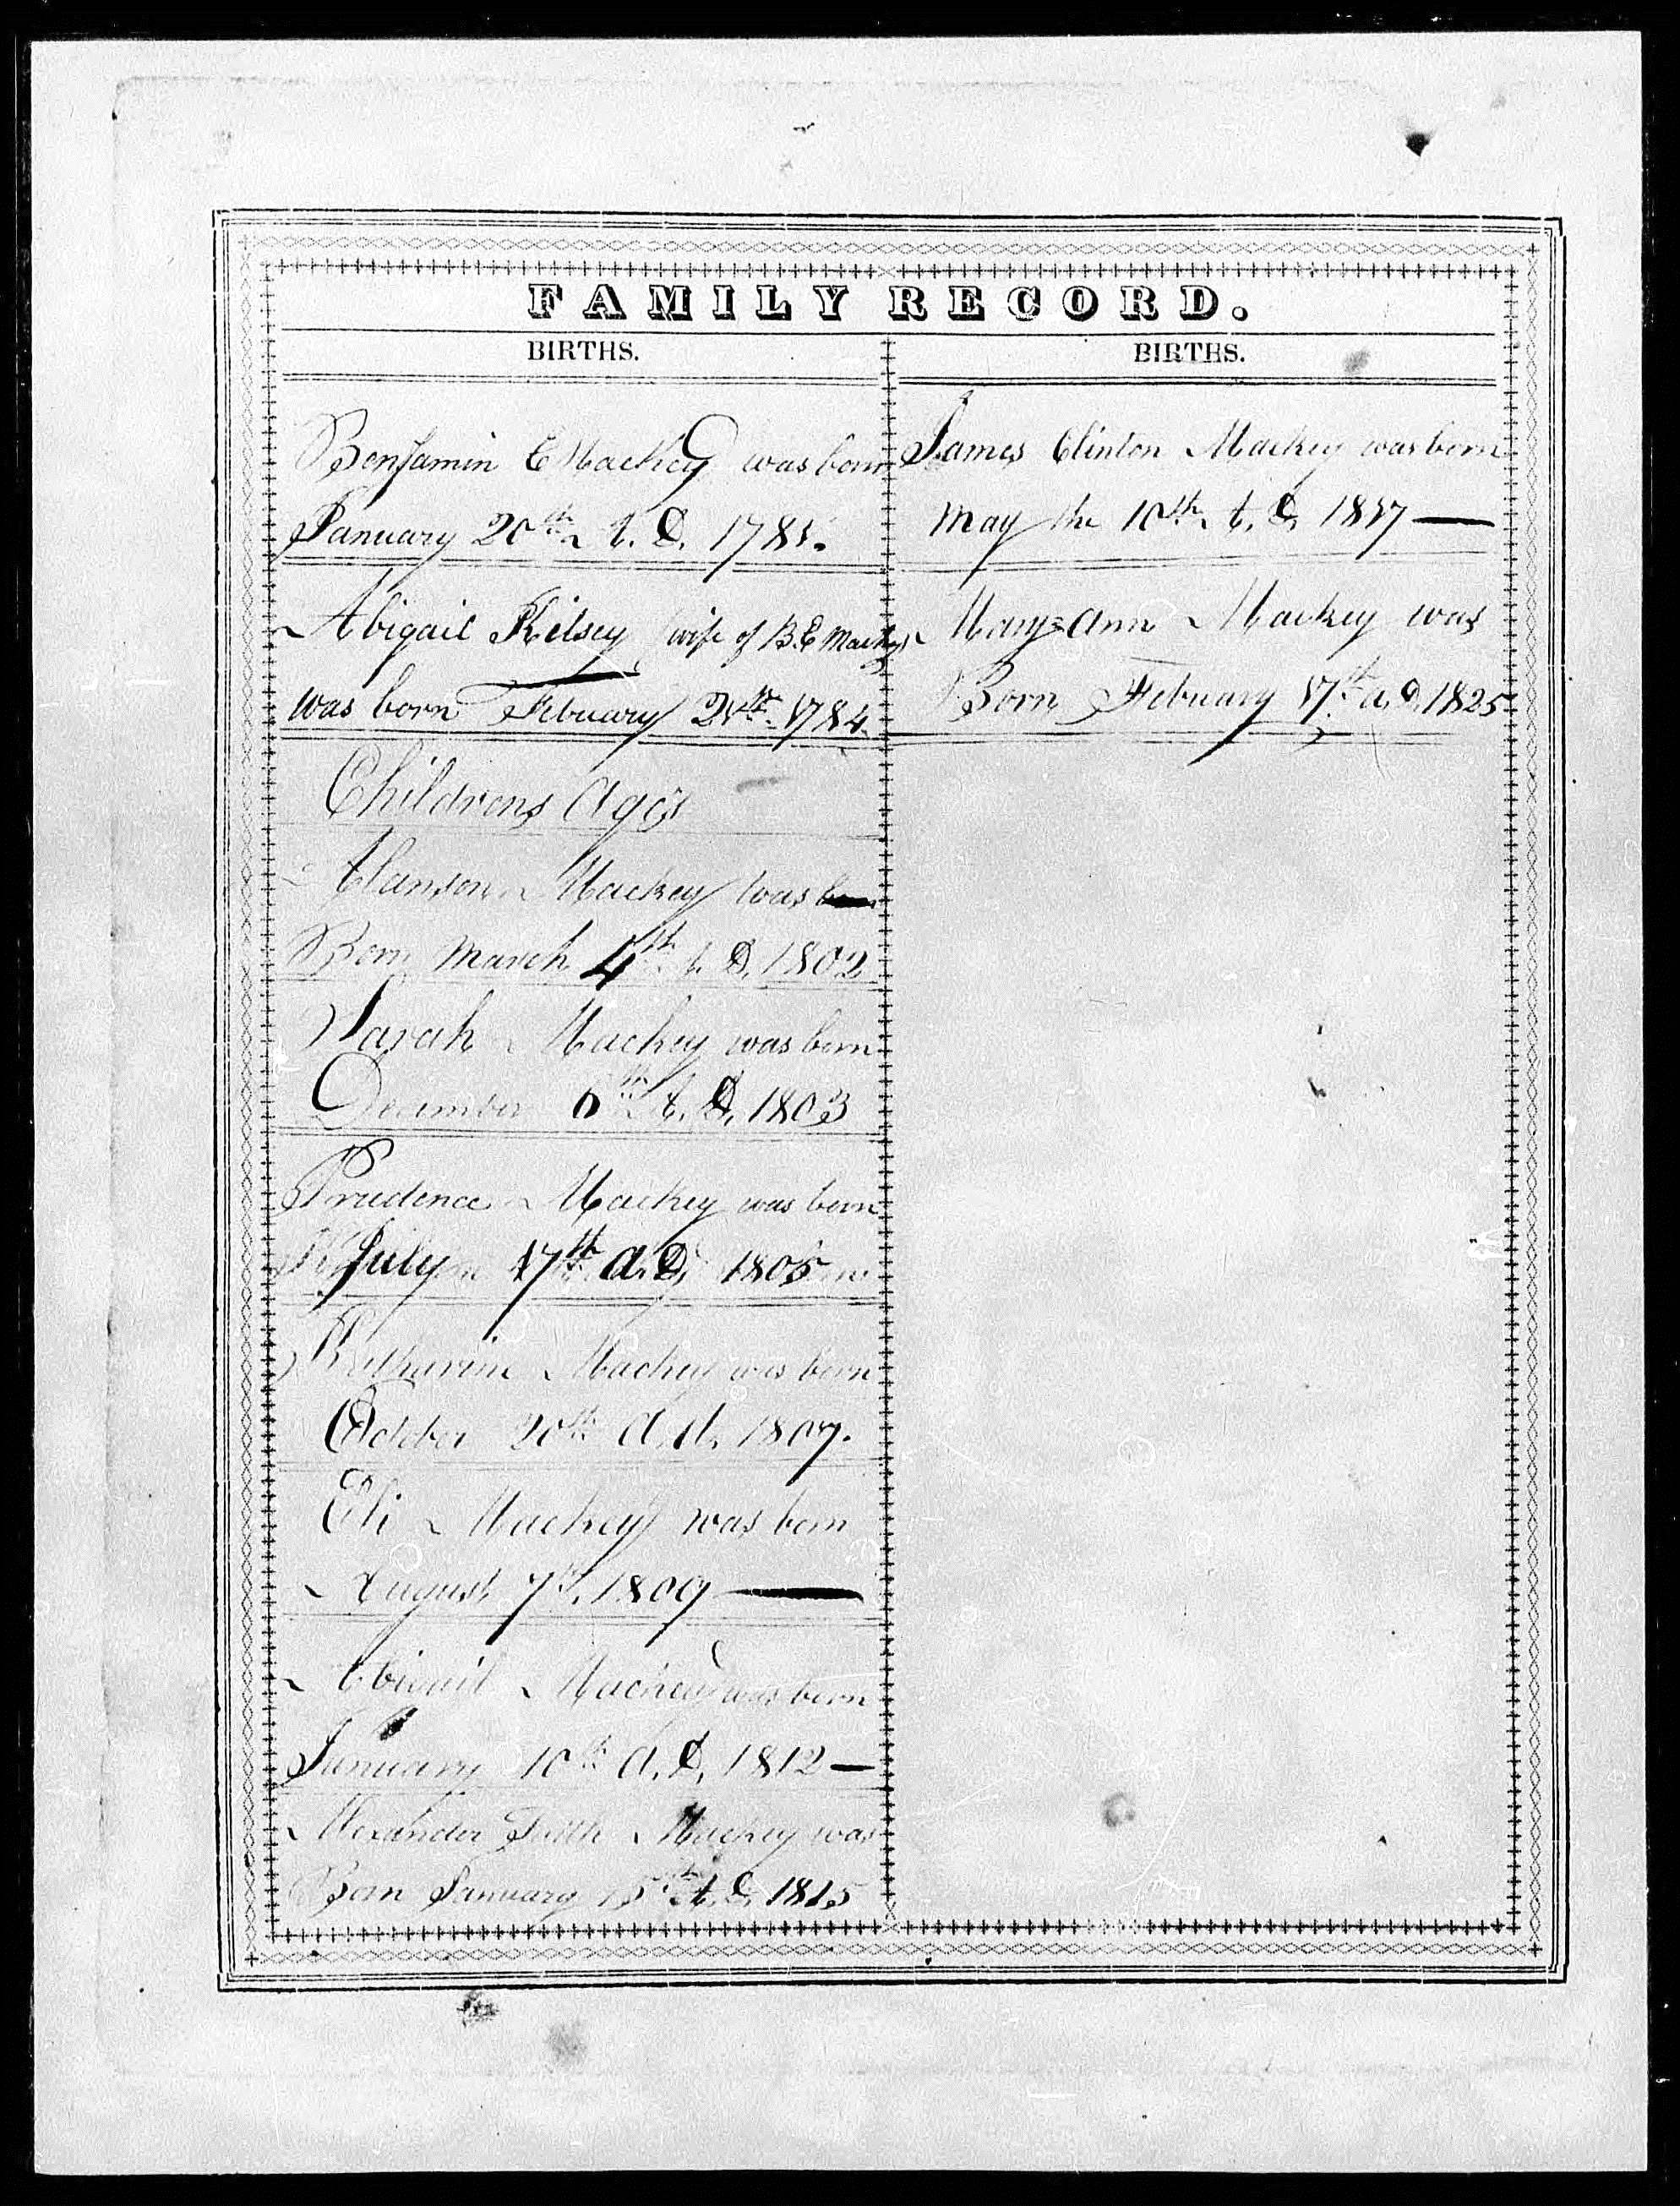 FAMILY RECORD.
BIRTHS.
Benjamin E Mackey was born
January 20th A. D. 1781.
Abigail Kelsey wife of B. E Mackey
was born February 21st 1784.
Childrens Ages
Alanson Mackey was
Born March 4th A. D. 1802
Sarah Mackey was born
December 6th A. D. 1803
Prudence Mackey was born
July 17th A. D. 1805
Katharine Mackey was born
October 20th A. d. 1807.
Eli Mackey was born
August 7th 1809
Abigail Mackey was born
January 10th A. D. 1812
Alexander Mackey was
Born January 15th A. D. 1815
BIRTHS.
James Clinton Mackey was born
May the 10th A. D. 1817
Mary=Ann Mackey was
Born February 17th A. D. 1825